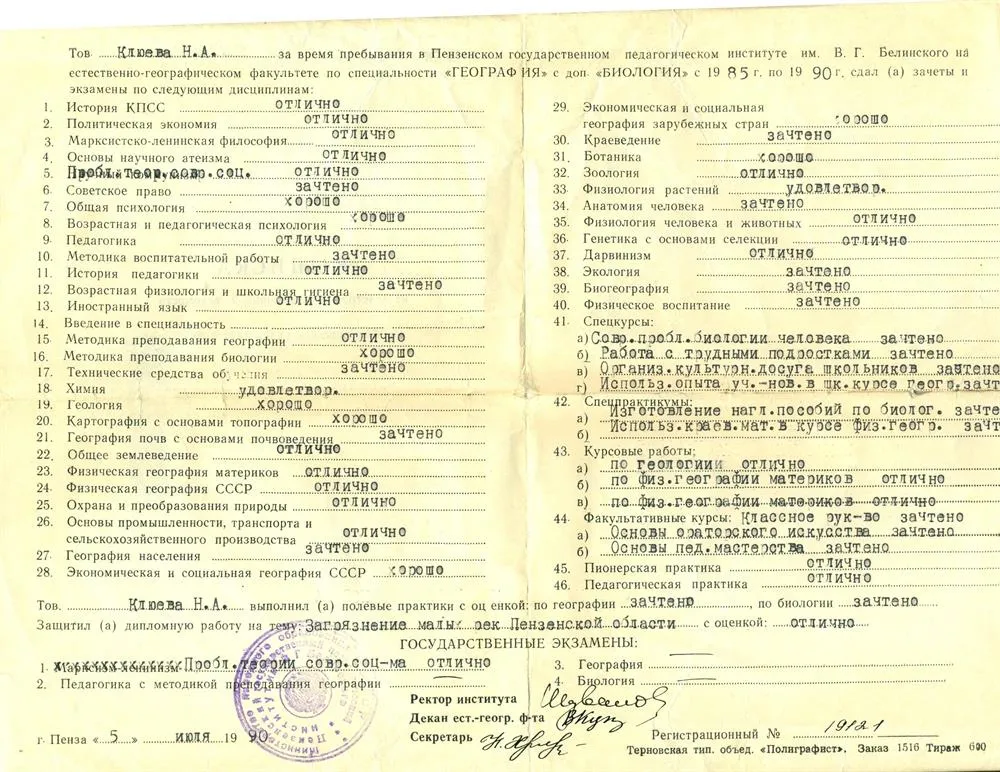 Тов. Клюева Н.А. за время пребывания в Пензенском государственном педагогическом институте им. В. Г. Белинского на
естественно-географическом факультете по специальности «ГЕОГРАФИЯ» с доп. «БИОЛОГИЯ» с 1985 г. по 1990 г. сдал (а) зачеты и
экзамены по следующим дисциплинам:
1. История КПСС отлично
2. Политическая экономия отлично
3. Марксистско-ленинская философия отлично
4. Основы научного атеизма отлично
5. Пробл.теор.совр.соц. отлично
6. Советское право зачтено
7. Общая психология хорошо
8. Возрастная и педагогическая психология хорошо
9. Педагогика отлично
10. Методика воспитательной работы зачтено
11. История педагогики отлично
12. Возрастная физиология и школьная гигиена зачтено
13. Иностранный язык отлично
14. Введение в специальность
15. Методика преподавания географии отлично
16. Методика преподавания биологии хорошо
17. Технические средства обучения зачтено
18. Химия удовлетвор.
19. Геология хорошо
20. Картография с основами топографии хорошо
21. География почв с основами почвоведения зачтено
22. Общее землеведение отлично
23. Физическая география материков отлично
24. Физическая география СССР отлично
25. Охрана и преобразования природы отлично
26. Основы промышленности, транспорта и
сельскохозяйственного производства отлично
27. География населения зачтено
28. Экономическая и социальная география СССР хорошо
29. Экономическая и социальная
география зарубежных стран хорошо
30. Краеведение зачтено
31. Ботаника хорошо
32. Зоология отлично
33. Физиология растений удовлетвор.
34. Анатомия человека зачтено
35. Физиология человека и животных отлично
36. Генетика с основами селекции отлично
37. Дарвинизм отлично
38. Экология зачтено
39. Биогеография зачтено
40. Физическое воспитание зачтено
41. Спецкурсы:
а) Совр.пробл.биологии человека зачтено
б) Работа с трудными подростками зачтено
в) Организ.культурн.досуга школьников зачтено
г) Использ.опыта уч.-нов.в шк.курсе геогр.зачт
42. Спецпрактикумы:
а) Изготовление нагл.пособий по биолог. зачте
б) Использ.краев.мат.в курсе физ.геогр. зачт
43. Курсовые работы:
а) по геологиии отлично
б) по физ.географии материков отлично
в) по физ.географии материков отлично
44. Факультативные курсы: Классное рук-во зачтено
а) Основы ораторского искусства зачтено
б) Основы пед.мастерства зачтено
45. Пионерская практика отлично
46. Педагогическая практика отлично
Тов. Клюева Н.А. выполнил (а) полевые практики с оценкой: по географии зачтено, по биологии зачтено
Защитил (а) дипломную работу на тему: Загрязнение малых рек Пензенской области с оценкой: отлично
ГОСУДАРСТВЕННЫЕ ЭКЗАМЕНЫ:
1. Пробл.теории совр.соц-ма отлично
2. Педагогика с методикой преподавания географии
3. География
4. Биология
Ректор института
Декан ест.-геогр. ф-та
Секретарь
г. Пенза «5» июля 1990 г.
Регистрационный № 19121
Терновская тип. объед. «Полиграфист». Заказ 1516 Тираж 600